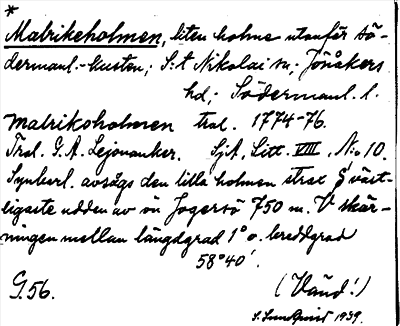 *
Matrikeholmen, liten holme utanför Sö-
dermanl.-kusten; S:t Nikolai sn; Jönåkers
hd; Södermanl. l.
Matrikoholmen trol. 1774-76.
G. A. Lejonanker. SjA, Litt. VIII, N:o 10.
Synberl. avsågs den lilla holmen strax väst-
ligaste udden av ön Jogersö 750 m. V skär-
ningen mellan längdgrad 1° o. breddgrad
58°40'.
G. 56. (Vänd!)
S. Sundquist 1939.